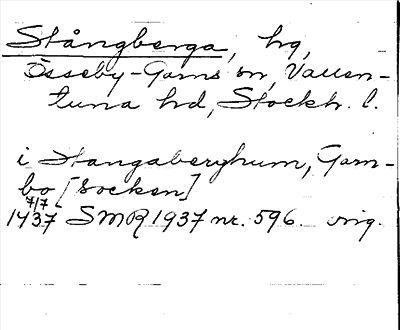 Stångberga, hg,
Össeby-Garns sn, Vallen-
tuna hd, Stockh. l.
i Stangaberghum, Garn-
bo [socken]
7/7
1437 SMR 1937 nr. 596. orig.